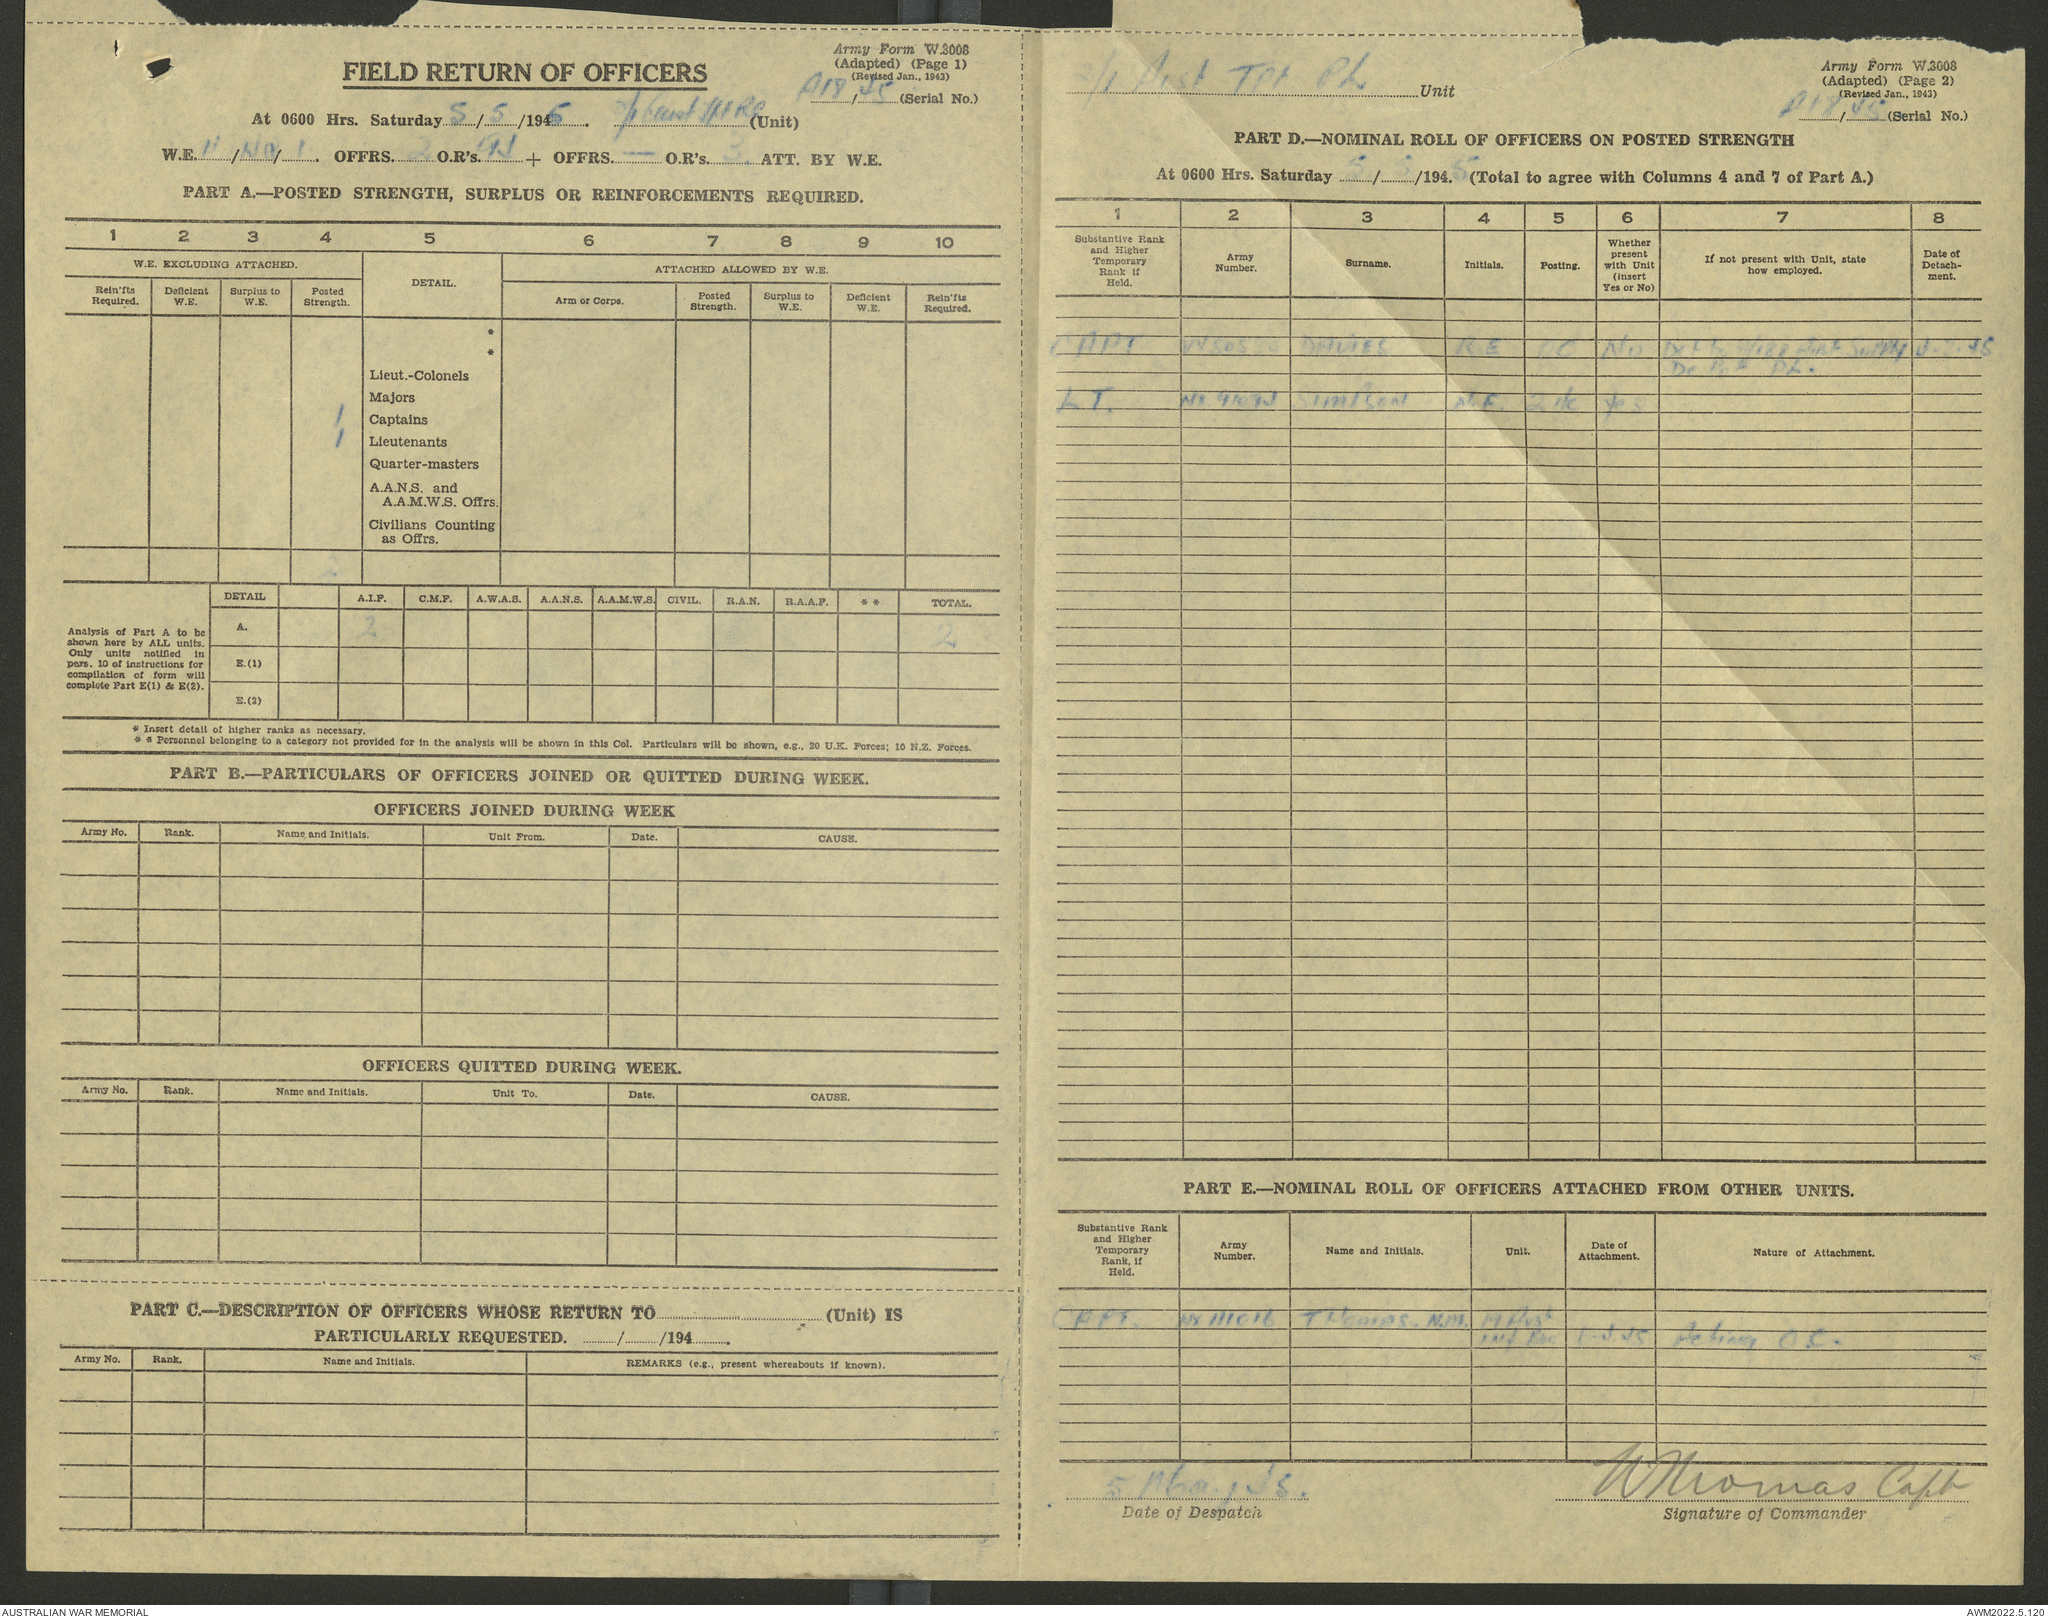 Army Form W.3008
(Adapted) (Page 1)
(Revised Jan., 1943)
A18/45 (Serial No.)
FIELD RETURN OF OFFICERS
At 0600 Hrs. Saturday 5/5/1945. (Unit)
W.E. 11/ /1. OFFRS. 2 O.R's. 94 + OFFRS. — O.R's. 3 ATT. BY W.E.
PART A.—POSTED STRENGTH, SURPLUS OR REINFORCEMENTS REQUIRED.
1 2 3 4 5 6 7 8 9 10
W.E. EXCLUDING ATTACHED. DETAIL. ATTACHED ALLOWED BY W.E.
Rein'fts Required. Deficient W.E. Surplus to W.E. Posted Strength. Arm or Corps. Posted Strength. Surplus to W.E. Deficient W.E. Rein'fts Required.
*
*
Lieut.-Colonels
Majors
1 Captains
1 Lieutenants
Quarter-masters
A.A.N.S. and
A.A.M.W.S. Offrs.
Civilians Counting
as Offrs.
2
DETAIL A.I.F. C.M.F. A.W.A.S. A.A.N.S. A.A.M.W.S. CIVIL. R.A.N. R.A.A.F. ** TOTAL.
Analysis of Part A to be
shown here by ALL units.
Only units notified in
para. 10 of instructions for
compilation of form will
complete Part E(1) & E(2).
A. 2 2
E.(1)
E.(2)
* Insert detail of higher ranks as necessary.
** Personnel belonging to a category not provided for in the analysis will be shown in this Col. Particulars will be shown, e.g., 20 U.K. Forces; 10 N.Z. Forces.
PART B.—PARTICULARS OF OFFICERS JOINED OR QUITTED DURING WEEK.
OFFICERS JOINED DURING WEEK
Army No. Rank. Name and Initials. Unit From. Date. CAUSE.
OFFICERS QUITTED DURING WEEK.
Army No. Rank. Name and Initials. Unit To. Date. CAUSE.
PART C.—DESCRIPTION OF OFFICERS WHOSE RETURN TO (Unit) IS
PARTICULARLY REQUESTED. / /194 .
Army No. Rank. Name and Initials. REMARKS (e.g., present whereabouts if known).
Army Form W.3008
(Adapted) (Page 2)
(Revised Jan., 1943)
A18/45 (Serial No.)
2/1 Aust Tpt Pl Unit
PART D.—NOMINAL ROLL OF OFFICERS ON POSTED STRENGTH
At 0600 Hrs. Saturday 5/5/1945. (Total to agree with Columns 4 and 7 of Part A.)
1 2 3 4 5 6 7 8
Substantive Rank and Higher Temporary Rank if Held. Army Number. Surname. Initials. Posting. Whether present with Unit (insert Yes or No) If not present with Unit, state how employed. Date of Detachment.
CAPT DAVIES R.E OC NO Supply
Depot Pl.
LT. SIMPSON 2 i/c yes
PART E.—NOMINAL ROLL OF OFFICERS ATTACHED FROM OTHER UNITS.
Substantive Rank and Higher Temporary Rank, if Held. Army Number. Name and Initials. Unit. Date of Attachment. Nature of Attachment.
CAPT. Thomas. Acting O.C.
5 May 45.
Date of Despatch
W Thomas Capt
Signature of Commander
AUSTRALIAN WAR MEMORIAL
AWM2022.5.120